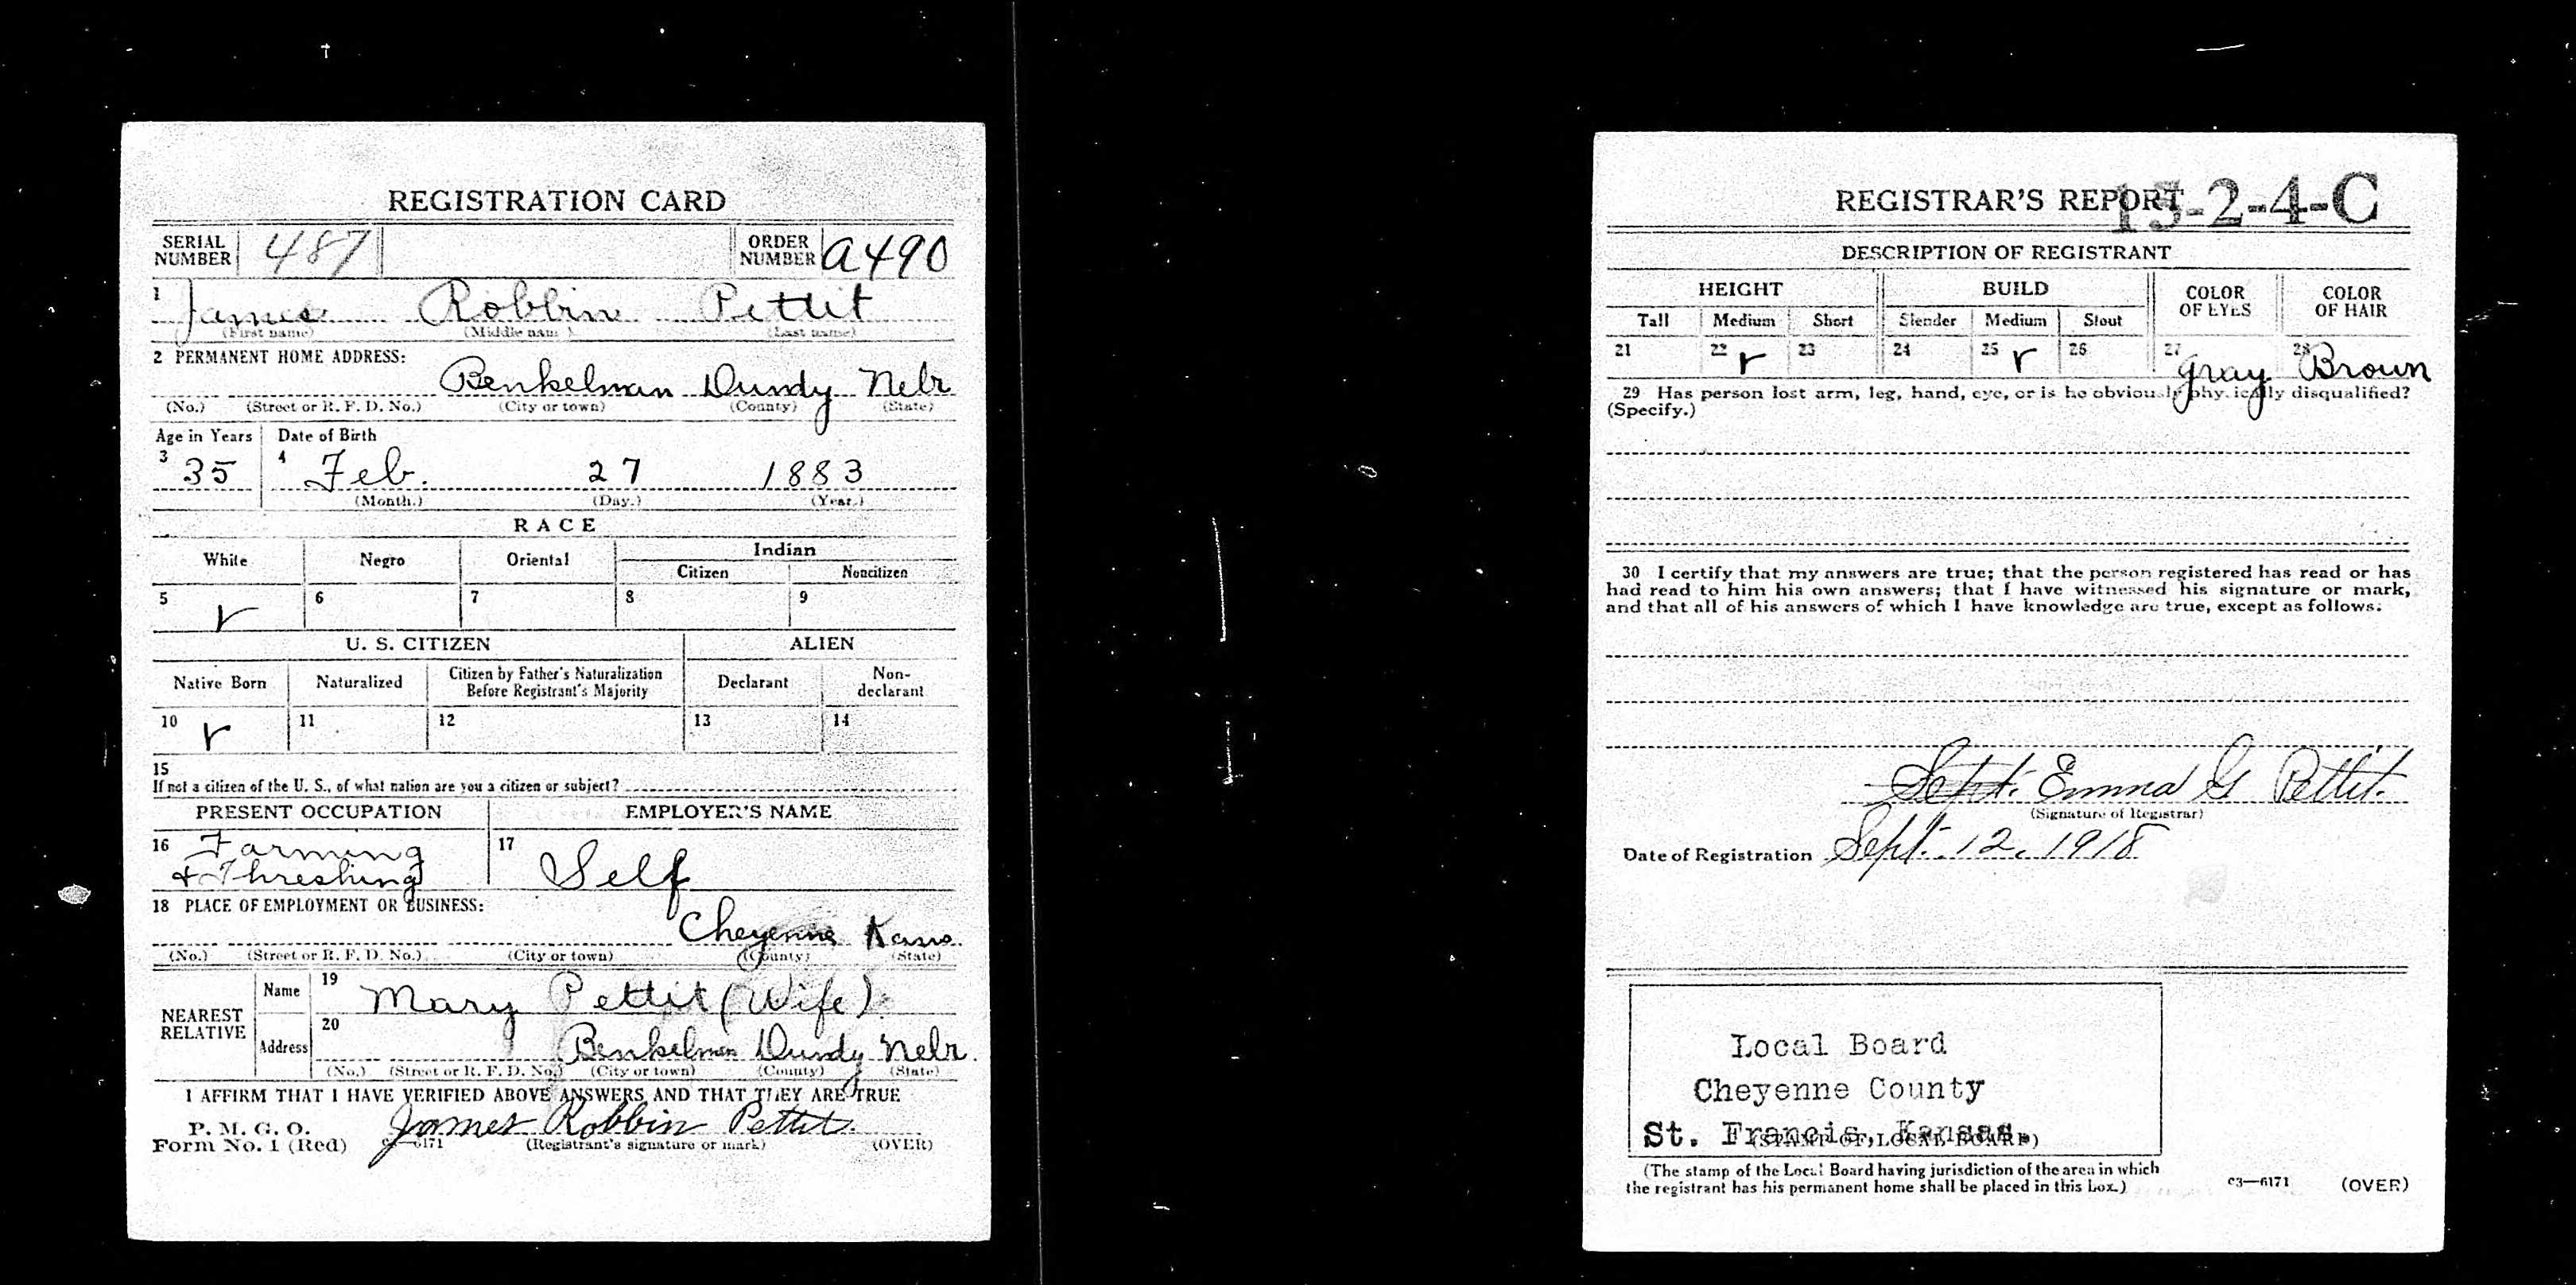 REGISTRATION CARD
SERIAL NUMBER 487 ORDER NUMBER a490
1 James Robbin Pettit
(First name) (Middle name) (Last name)
2 PERMANENT HOME ADDRESS:
Benkelman Dundy Nebr
(No.) (Street or R. F. D. No.) (City or town) (County) (State)
Age in Years Date of Birth
3 35 4 Feb. 27 1883
(Month.) (Day.) (Year.)
RACE
White Negro Oriental Indian
Citizen Noncitizen
5 6 7 8 9
U. S. CITIZEN ALIEN
Native Born Naturalized Citizen by Father's Naturalization Before Registrant's Majority Declarant Non-declarant
10 11 12 13 14
15
If not a citizen of the U. S., of what nation are you a citizen or subject?
PRESENT OCCUPATION EMPLOYER'S NAME
16 Farming 17
& Threshing Self
18 PLACE OF EMPLOYMENT OR BUSINESS:
Cheyenne Kans.
(No.) (Street or R. F. D. No.) (City or town) (County) (State)
NEAREST RELATIVE
Name 19 Mary Pettit (Wife)
Address 20 Benkelman Dundy Nebr.
(No.) (Street or R. F. D. No.) (City or town) (County) (State)
I AFFIRM THAT I HAVE VERIFIED ABOVE ANSWERS AND THAT THEY ARE TRUE
P. M. G. O. James Robbin Pettit.
Form No. 1 (Red) c3—6171 (Registrant's signature or mark) (OVER)
REGISTRAR'S REPORT 15-2-4-C
DESCRIPTION OF REGISTRANT
HEIGHT BUILD COLOR OF EYES COLOR OF HAIR
Tall Medium Short Slender Medium Stout
21 22 23 24 25 26 27 Gray 28 Brown
29 Has person lost arm, leg, hand, eye, or is he obviously physically disqualified?
(Specify.)
30 I certify that my answers are true; that the person registered has read or has
had read to him his own answers; that I have witnessed his signature or mark,
and that all of his answers of which I have knowledge are true, except as follows:
Sept. Emma G Pettit.
(Signature of Registrar)
Date of Registration Sept. 12, 1918
Local Board
Cheyenne County
St. Francis, Kansas.
(STAMP OF LOCAL BOARD)
(The stamp of the Local Board having jurisdiction of the area in which
the registrant has his permanent home shall be placed in this box.)
c3—6171 (OVER)